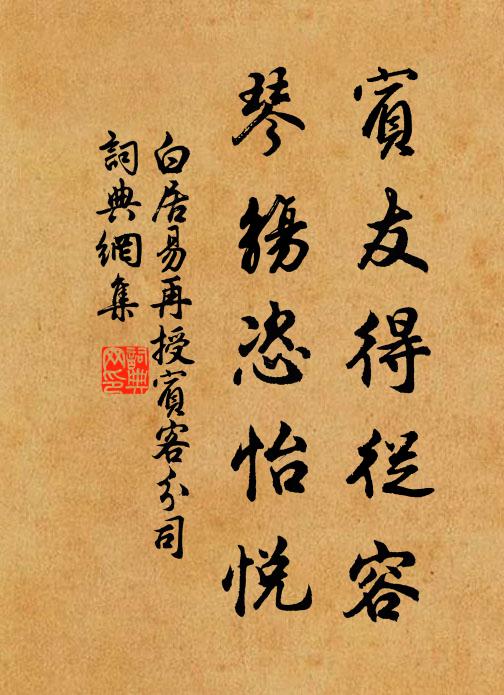 賓友得從容
琴觴恣怡悅
白居易再授賓客分司
詞典網集
詞典網印